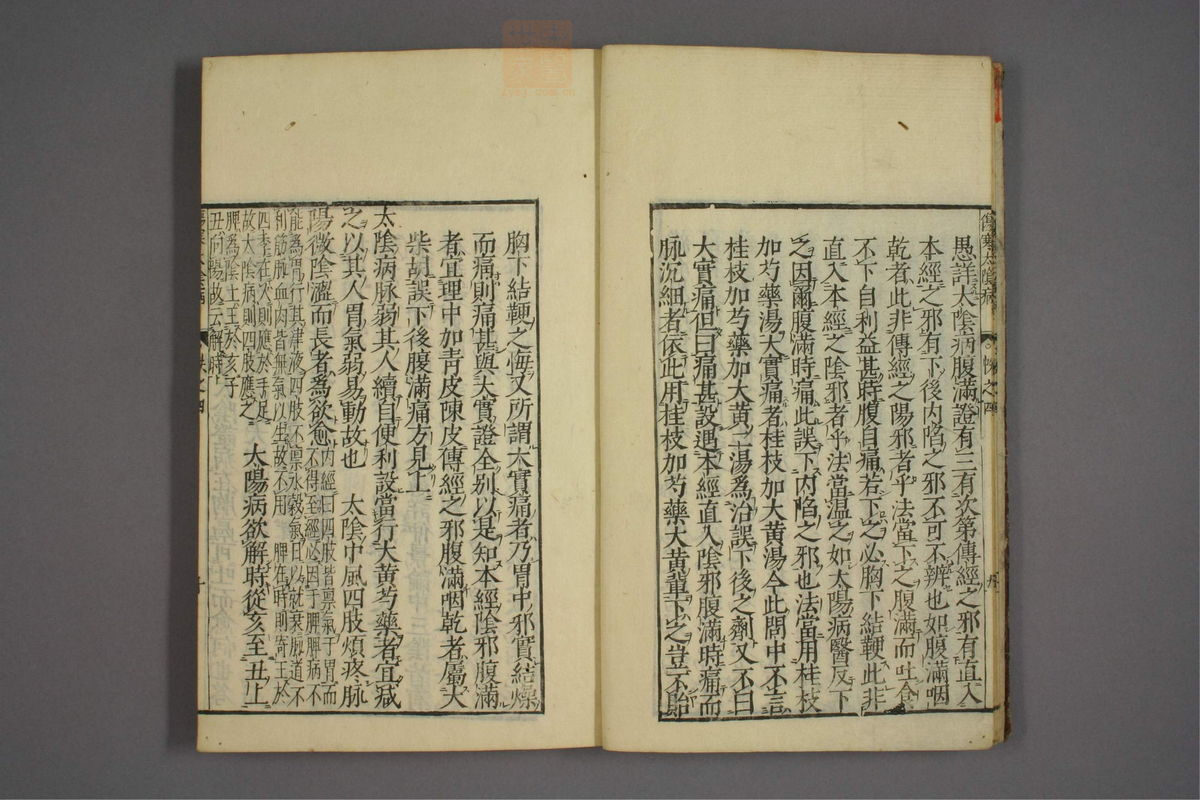 傷寒太陰病
愚詳太陰病腹滿證有三有次第傳經之邪有直入
本經之邪有下後內陷之邪不可不辨也如腹滿咽
乾者此非傳經之陽邪者乎法當下之腹滿而吐食
不下自利益甚時腹自痛若下之必胸下結鞕此非
直入本經之陰邪者乎法當温之如太陽病醫反下
之因爾腹滿時痛此誤下內陷之邪也法當用桂枝
加芍藥湯大實痛者桂枝加大黃湯今此問中不言
桂枝加芍藥加大黃二湯為治誤下後之劑又不曰
大實痛但曰痛甚設遇本經直入陰邪腹滿時痛而
脉沉細者依此用桂枝加芍藥大黃輩下之豈不貽
胸下結鞕之悔又所謂大實痛者乃胃中邪實結燥
而痛則痛甚與大實證全别以是知本經陰邪腹滿
者宜理中加靑皮陳皮傳經之邪腹滿咽乾者屬大
柴胡誤下後腹滿痛方見上
太陰病脉弱其人續自便利設當行大黃芍藥者宜减
之以其人胃氣弱易動故也　太陰中風四肢煩疼脉
陽微陰濇而長者為欲愈
內經曰四肢皆禀氣于胃而
不得至經必因于脾脾病不
能為胃行其津液四肢不禀水穀氣日以就衰脉道不
利筋脉血肉皆無氣以生故不用　脾在時則寄王於
四季在人則應於手足
故太陰病則四肢應之　太陽病欲解時從亥至丑上
脾為陰土王於亥子
丑向陽故云解時